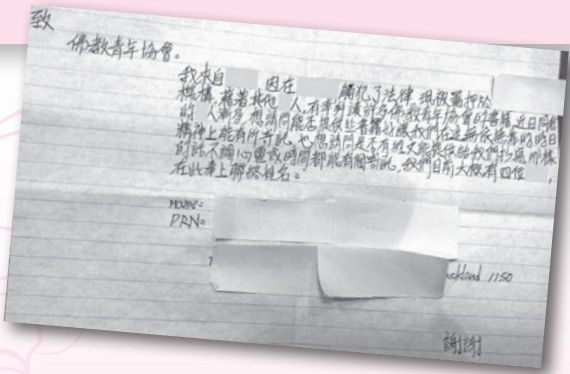 致
佛教青年協會。
我來自 因在 觸犯了法律 現被羈押於
機構，藉著其他 人，有幸判讀許多佛教青年協會的書籍 近日同倉
的 人漸多 想請問能否提供些書籍以緩我們在這無依無靠的時日
精神上能有所寄託，也想請問是不有經文能提供給我們抄寫 那樣
的話不論心靈或時間都能有個寄託，我們目前大概有四位 ，
在此奉上聯絡姓名。
name:
PRN:
ckland 1150
謝謝